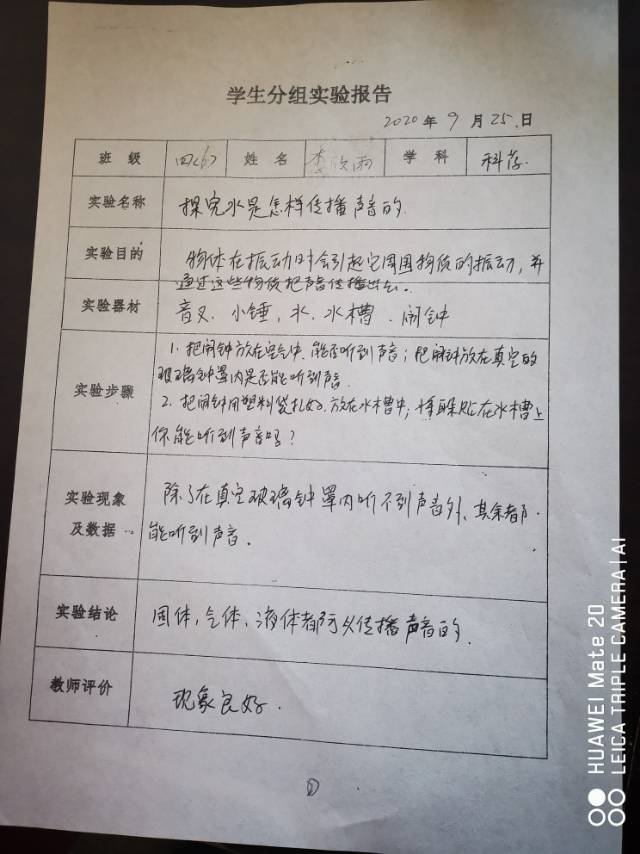 学生分组实验报告
2020年9月25日
班级 四(6) 姓名 李欣雨 学科 科学
实验名称 探究水是怎样传播声音的
实验目的 物体在振动时会引起它周围物质的振动,并
通过这些物质把声音传播出去。
实验器材 音叉、小锤、水、水槽、闹钟
实验步骤 1. 把闹钟放在空气中,能否听到声音;把闹钟放在真空的
玻璃钟罩内是否能听到声音
2. 把闹钟用塑料袋扎好,放在水槽中,将耳朵贴在水槽上
你能听到声音吗?
实验现象及数据 除了在真空玻璃钟罩内听不到声音外、其余都
能听到声音.
实验结论 固体、气体、液体都可以传播声音的.
教师评价 现象良好.
①
HUAWEI Mate 20
LEICA TRIPLE CAMERA | AI